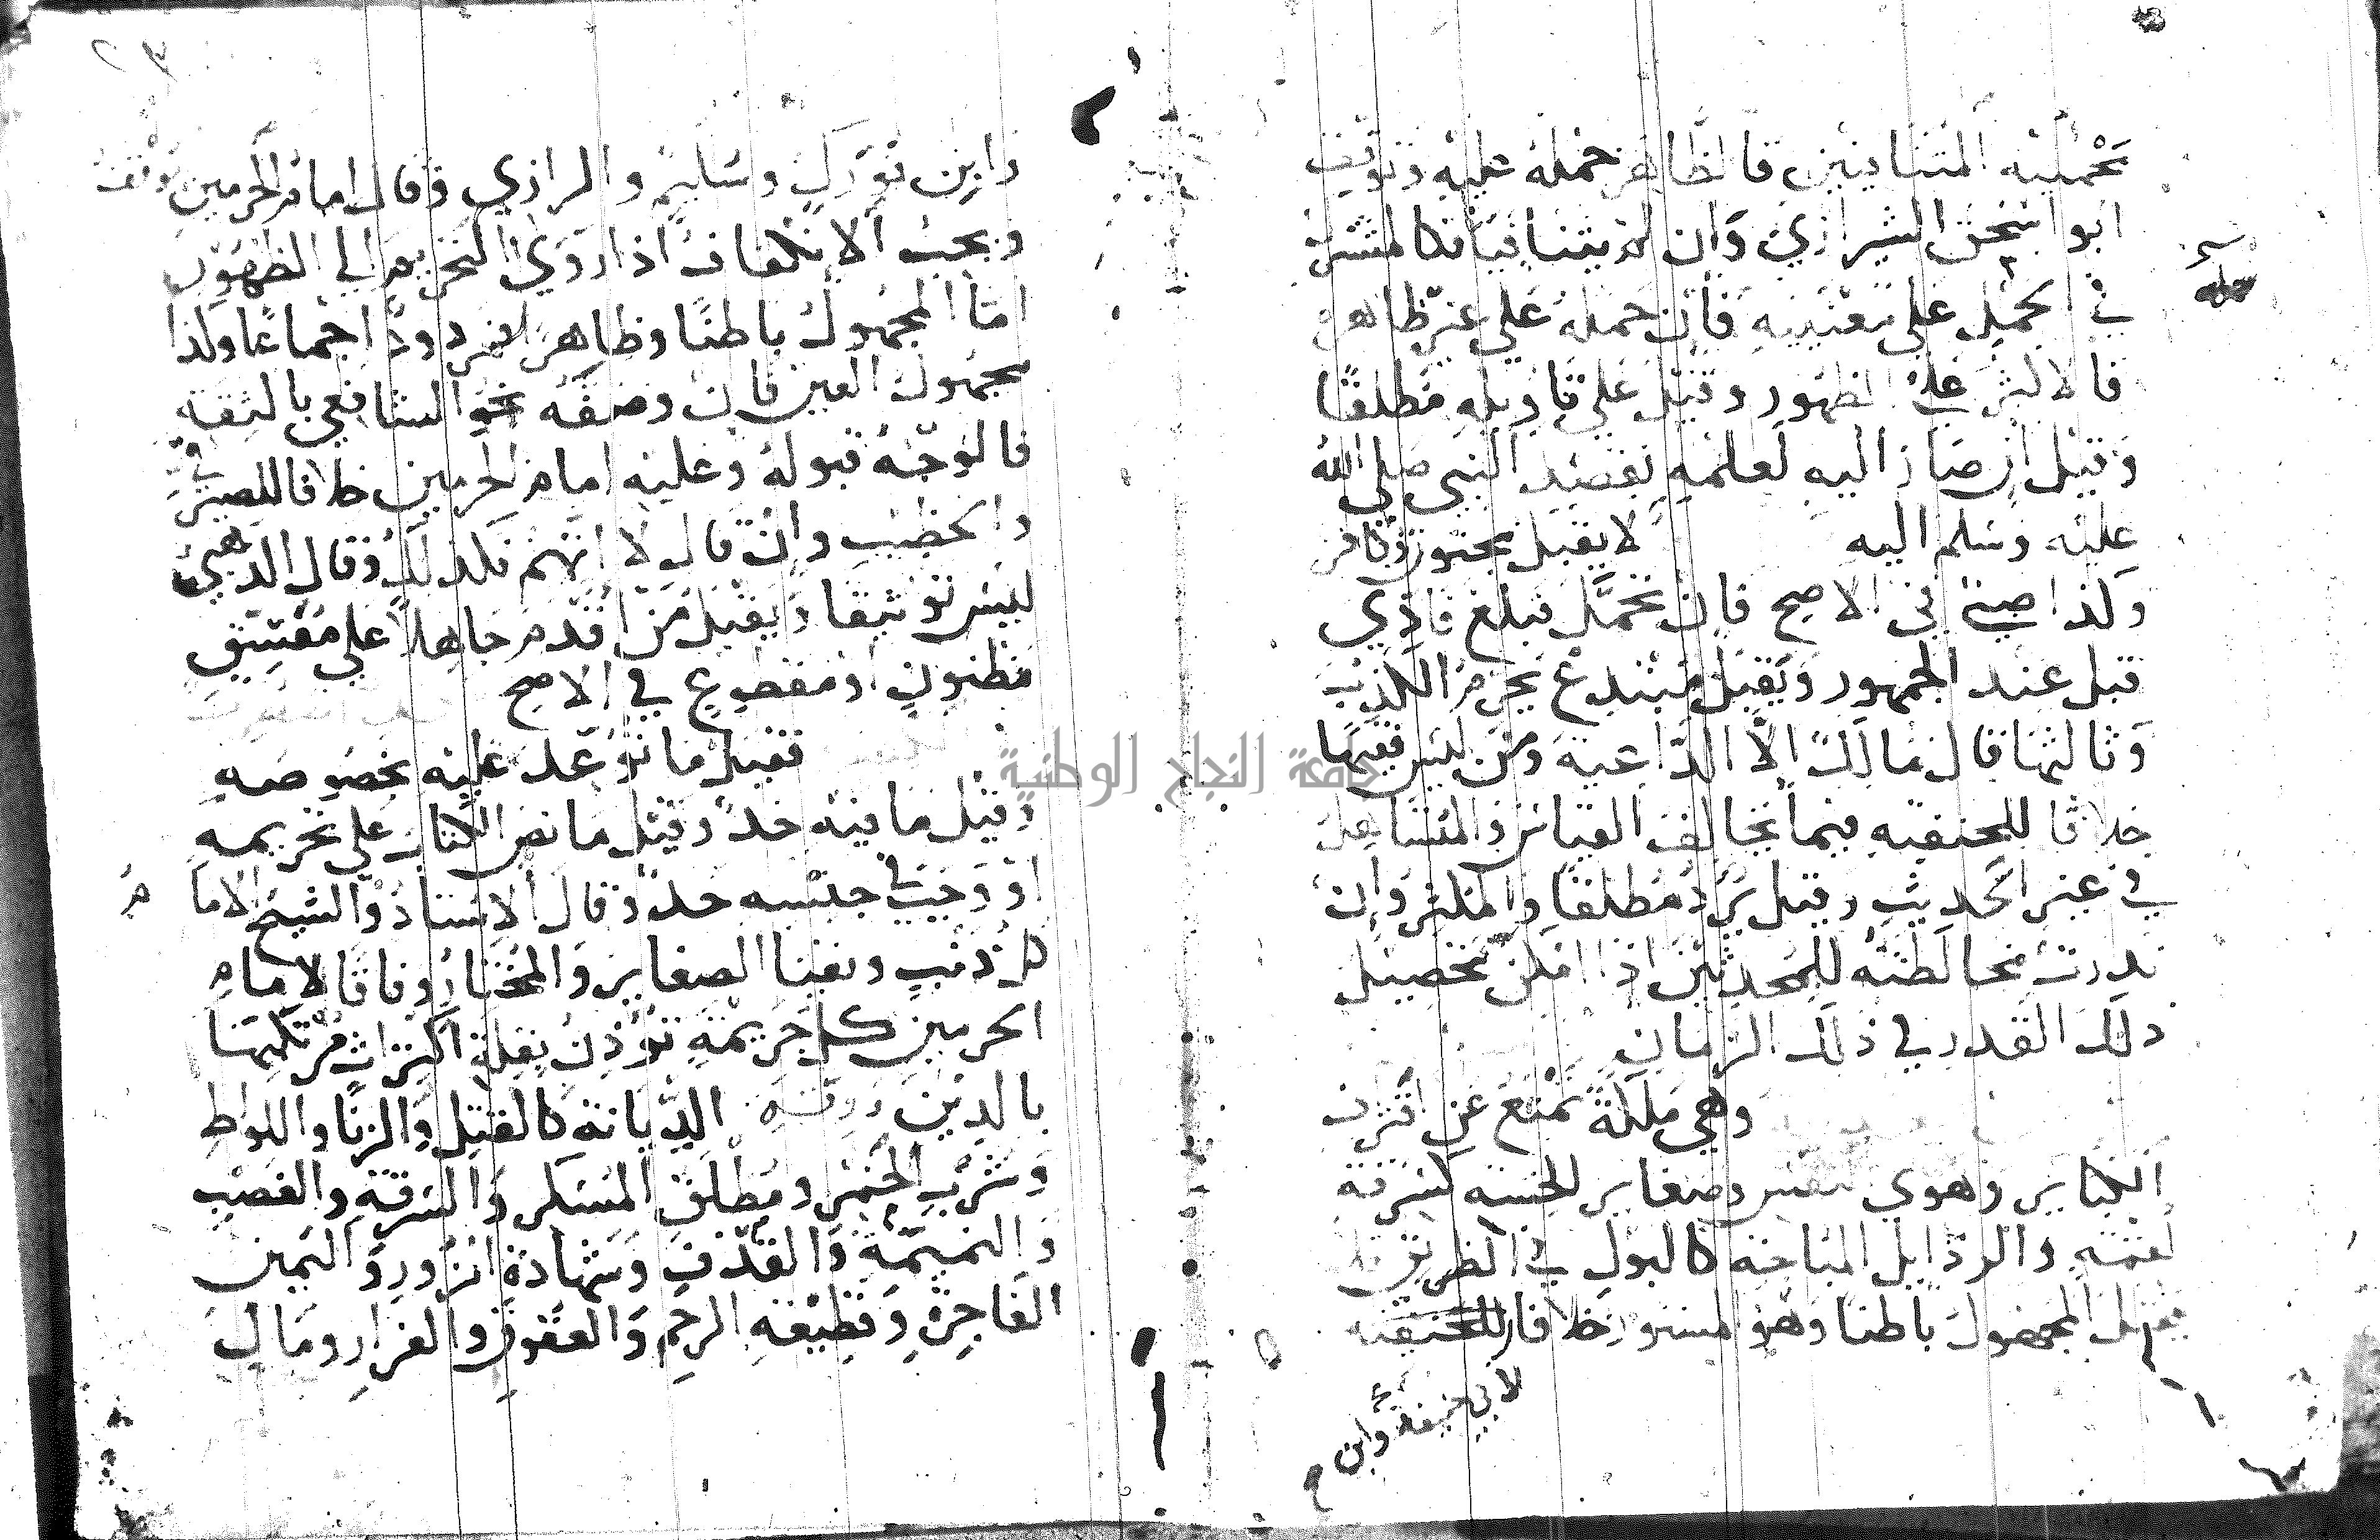 محمليه المتنافيين فالظاهر حمله عليه وتوقف
ابو اسحق الشيرازي وان لم يتنافيا فكالمشترك
في الحمل على معنييه فان حمله على غير ظاهره
فالاكثر على الظهور وقيل على تاويله مطلقا
وقيل ان صار اليه لعلمه بقصد النبي صلى الله
عليه وسلم اليه لا يقبل مجنون وكافر
وكذا صبي في الاصح فان تحمل فبلغ فادي
قبل عند الجمهور ويقبل مبتدع يحرم الكذب
وثالثها قال مالك الا الداعية ومن ليس فقيها
خلافا للحنفيه فيما يخالف القياس والمتساهل
في غير الحديث وقيل يرد مطلقا والمكثر وان
ندرت مخالطته للمحدثين اذا امكن تحصيل
ذلك القدر في ذلك الزمان
وهي ملكة تمنع عن اقتراف
الكباير وهوي النفس وصغاير الخسه كسرقة
لقمة والرذايل المباحة كالبول في الطريق فلا
يقبل المجهول باطنا وهو المستور خلافا للحنفيه
لابي حنيفة وابن
٢٣
وابن فورك وسليم والرازي وقال امام الحرمين يوقف
ويجب الانكفاف اذا روي التحريم الي الظهور
اما المجهول باطنا وظاهرا فمردود اجماعا وكذا
مجهول العين فان وصفه نحو الشافعي بالثقة
فالوجه قبوله وعليه امام الحرمين خلافا للصيرفي
والخطيب وان قال لا اتهم فكذلك وقال الذهبي
ليس توثيقا ويقبل من اقدم جاهلا على مفسق
مظنون او مقطوع في الاصح
فقيل ما توعد عليه بخصوصه
وقيل ما فيه حد وقيل ما نص الكتاب على تحريمه
او وجب في جنسه حد وقال الاستاذ والشيخ الامام
كل ذنب ونفيا الصغاير والمختار وفاقا لامام
الحرمين كل جريمة تؤذن بقلة اكتراث مرتكبها
بالدين ورقة الديانة كالقتل والزنا واللواط
وشرب الخمر ومطلق المسكر والسرقة والغصب
والنميمة والقذف وشهادة الزور واليمين
الفاجرة وقطيعة الرحم والعقوق والفرار ومال
جامعة النجاح الوطنية